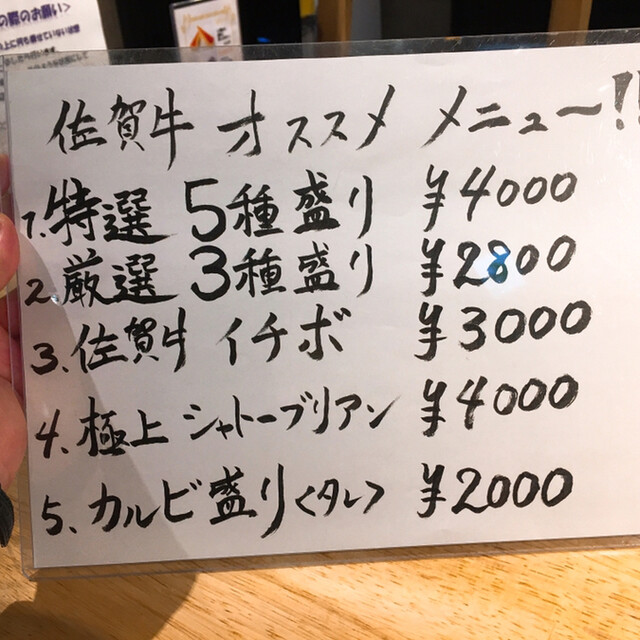 の際のお願い>
佐賀牛 オススメ メニュー!!
1. 特選 5種盛り ¥4000
2. 厳選 3種盛り ¥2800
3、佐賀牛 イチボ ¥3000
4、極上 シャトーブリアン ¥4000
5、カルビ盛り<タレ> ¥2000